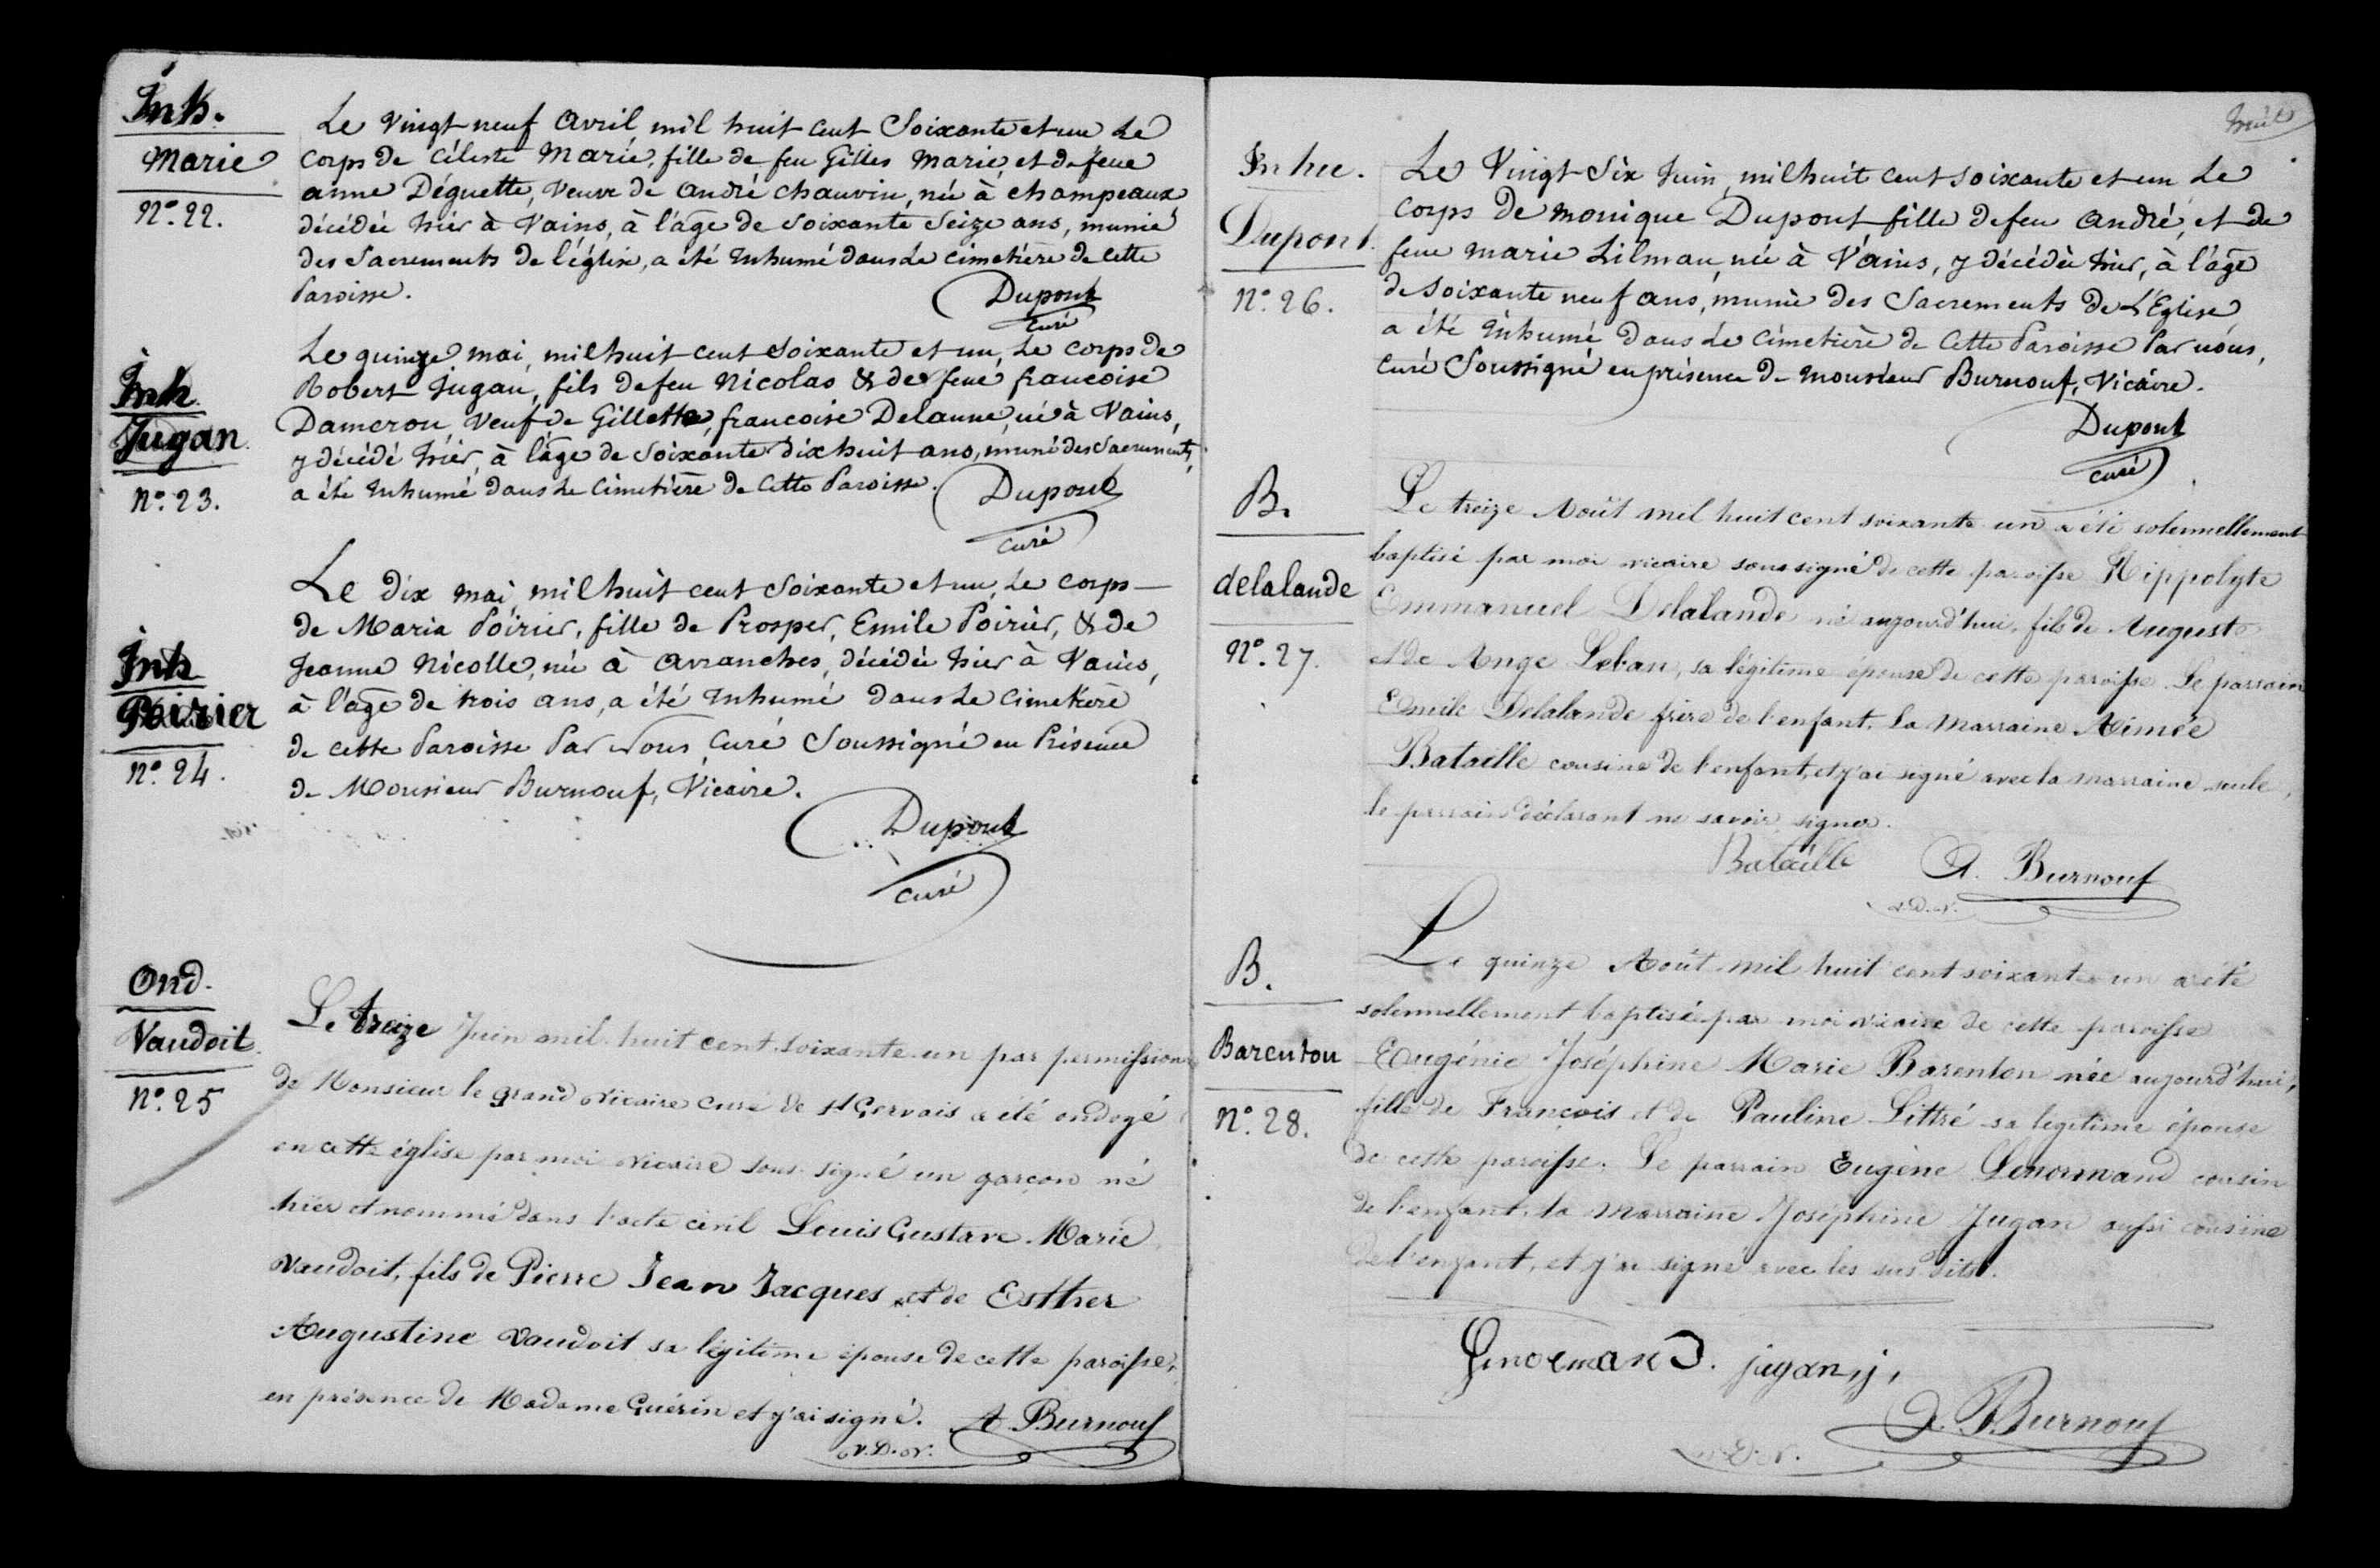 Inh.
Marie
N°. 22.
Le Vingt-neuf Avril, mil huit cent Soixante et un Le
Corps de Céleste Marie, fille de feu Gilles Marie, et de feue
anne Déguette, Veuve de André Chauvin, née à Champeaux
décédée hier à Vains, à l'âge de Soixante Seize ans, munie
des Sacrements de l'église, a été Inhumé dans Le Cimetière de cette
Paroisse.
Dupont
Curé
Inh.
Jugan
N°. 23.
Le quinze mai, mil huit cent Soixante et un, Le Corps de
Robert Jugan, fils de feu Nicolas & de feue francoise
Dameron Veuf de Gillette, francoise Delaune, né à Vains,
y décédé hier, à l'âge de Soixante dix huit ans, muni des Sacrements,
a été Inhumé dans Le Cimetière de Cette Paroisse.
Dupont
Curé
Inh
Poirier
N°. 24.
Le dix mai, mil huit cent Soixante et un, Le Corps
de Maria Poirier, fille de Prosper, Emile Poirier, & de
Jeanne Nicolle, née à Avranches, décédée hier à Vains,
à l'âge de trois ans, a été Inhumé dans Le Cimetière
de cette Paroisse Par Nous Curé Soussigné en Présence
de Monsieur Burnouf, Vicaire.
Dupont
Curé
Ond.
Vaudoit
N°. 25
Le treize Juin mil huit cent soixante un par permission
de Monsieur le grand Vicaire curé de St Gervais a été ondoyé
en cette église par moi vicaire sous signé un garçon né
hier et nommé dans l'acte civil Louis Gustave Marie
Vaudoit, fils de Pierre Jean Jacques et de Esther
Augustine Vaudoit sa légitime épouse de cette paroisse,
en présence de Madame Guérin et j'ai signé. A Burnouf
v. D. v.
huit
Inhu.
Dupont.
N°. 26.
Le Vingt-Six Juin, mil huit cent soixante et un Le
Corps de monique Dupont fille de feu André, et de
feue marie Lilman, née à Vains, y décédée hier, à l'âge
de Soixante neuf ans, munie des Sacrements de L'Eglise
a été Inhumé dans Le Cimetière de Cette Paroisse Par nous,
Curé Soussigné en présence de monsieur Burnouf, Vicaire.
Dupont
Curé
B.
delalande
N°. 27.
Le treize Août mil huit cent soixante un a été solennellement
baptisé par moi vicaire sous signé de cette paroisse Hippolyte
Emmanuel Delalande né aujourd'hui, fils de Auguste
et de Ange Leban, sa légitime épouse de cette paroisse. Le parrain
Emile Delalande frère de l'enfant. La Marraine Aimée
Bataille cousine de l'enfant, et j'ai signé avec la marraine seule,
le parrain déclarant ne savoir signer.
Bataille A. Burnouf
v. D. v.
B.
Barenton
N°. 28.
Le quinze Août mil huit cent soixante un a été
solennellement baptisée par moi vicaire de cette paroisse
Eugénie Joséphine Marie Barenton née aujourd'hui,
fille de François et de Pauline Littré sa légitime épouse
de cette paroisse. Le parrain Eugène Lenormand cousin
de l'enfant, la Marraine Joséphine Jugan aussi cousine
de l'enfant, et j'ai signé avec les sus dits.
Lenormand. jugan, j,
A. Burnouf
v. D. v.